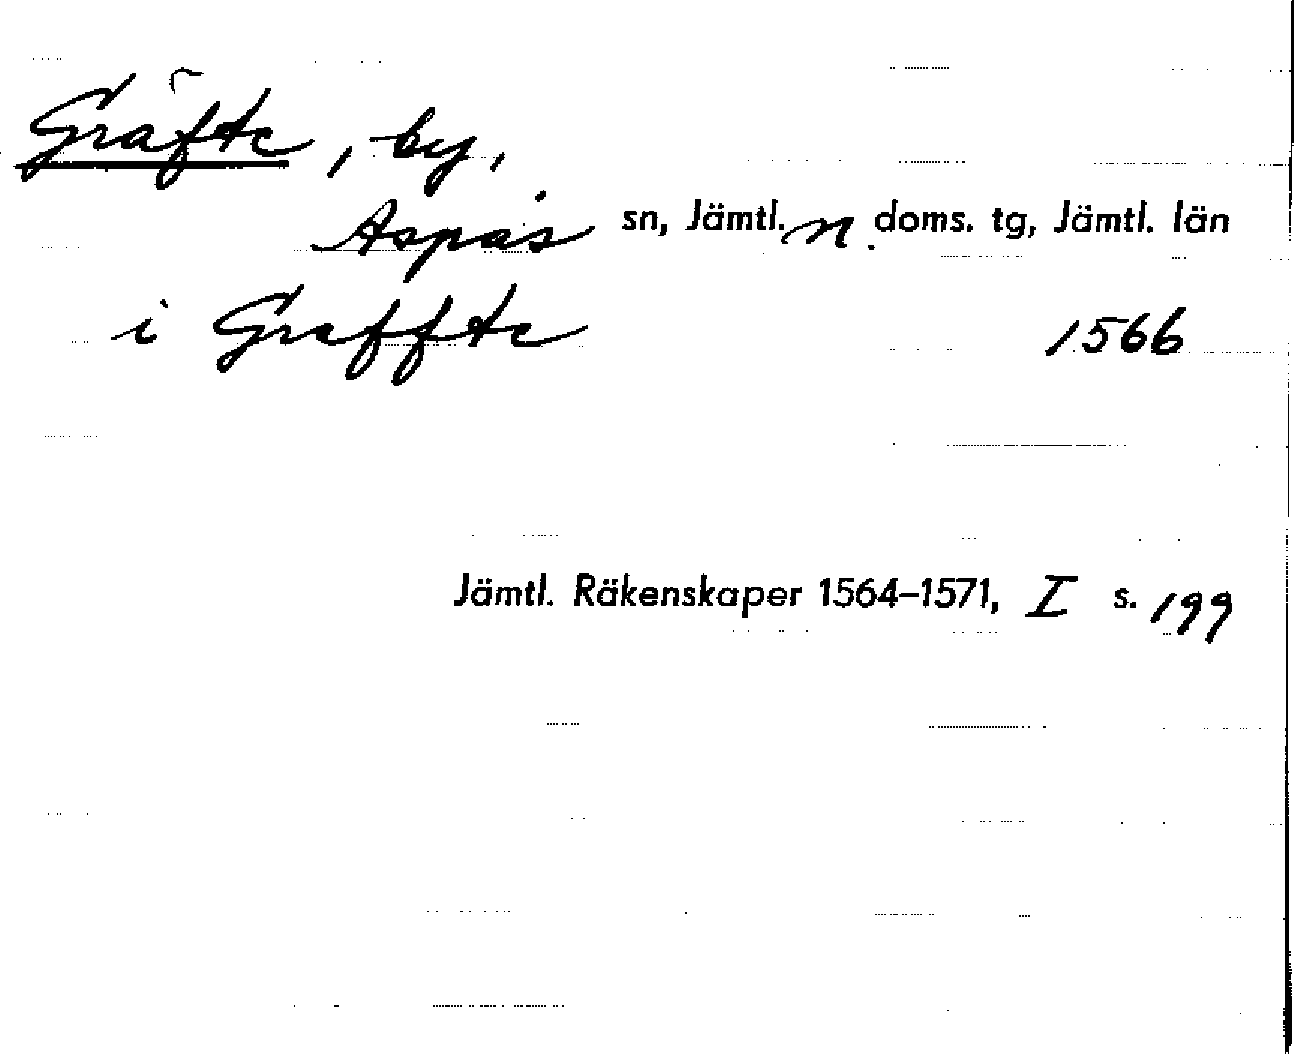 Gräfte, by,
Aspås sn, Jämtl. n. doms. tg, Jämtl. län
i Greffte 1566
Jämtl. Räkenskaper 1564–1571, I s. 199